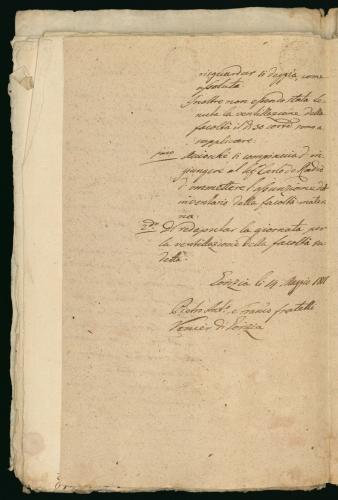 risguardar si deggia, come
assoluta
Inoltre non essendo stata te-
nuta la ventilazione della
facoltà il dì 30
supplicare.
primo Acciochè si compiaccia d'in-
giungere al Sig. Carlo de
d'immettere l'assunzione del
inventario della facoltà mater-
na.
2do Di redeputar la giornata per
la ventilazione della facoltà su-
detta.
Gorizia li 14 Maggio 181
Pietro Anto. e Franco fratelli
Venier di Gorizia